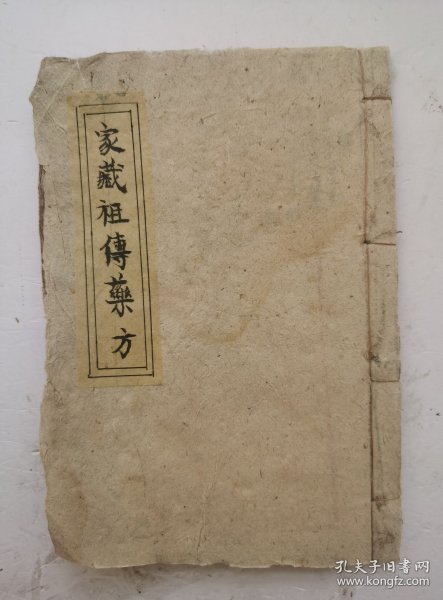 家藏祖傳藥方
孔夫子旧书网
www.kongfz.com